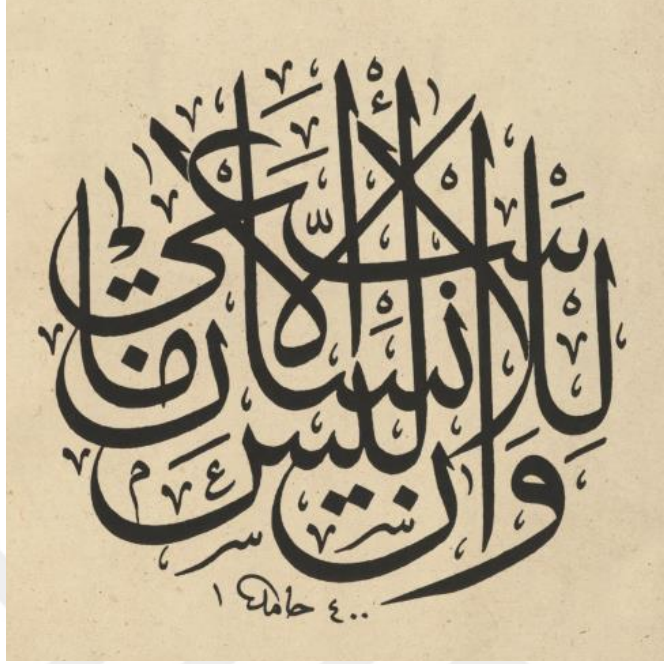 وَأَن لَّيْسَ لِلْإِنسَانِ إِلَّا مَا سَعَىٰ
حامد ١٤٠٠